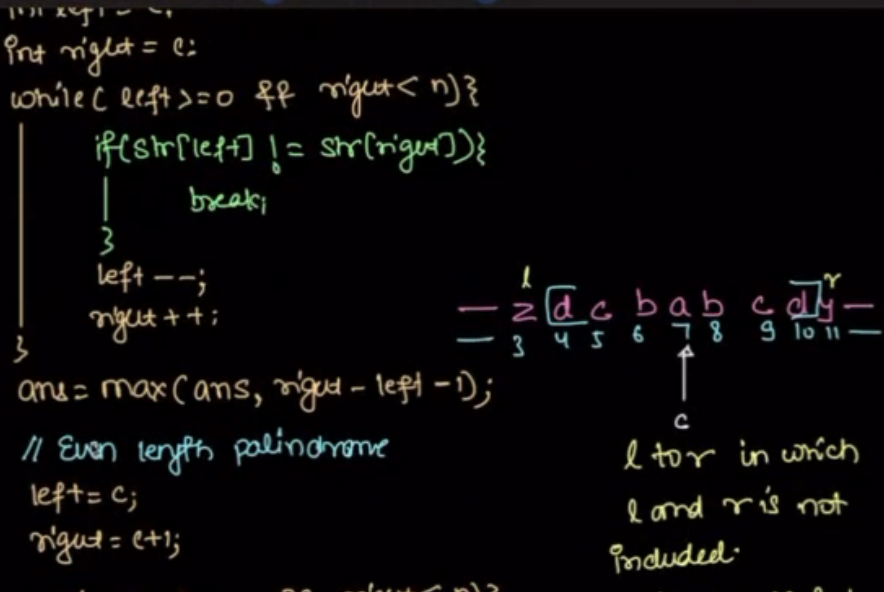 int left = c;
int right = c;
while( left >=0 && right < n){
if(str[left] != str[right]){
break;
}
left --;
right ++;
}
ans = max(ans, right - left -1);
// Even length palindrome
left = c;
right = c+1;
right < n){
l r
— z d c b a b c d y —
— 3 4 5 6 7 8 9 10 11 —
c
l to r in which
l and r is not
included.